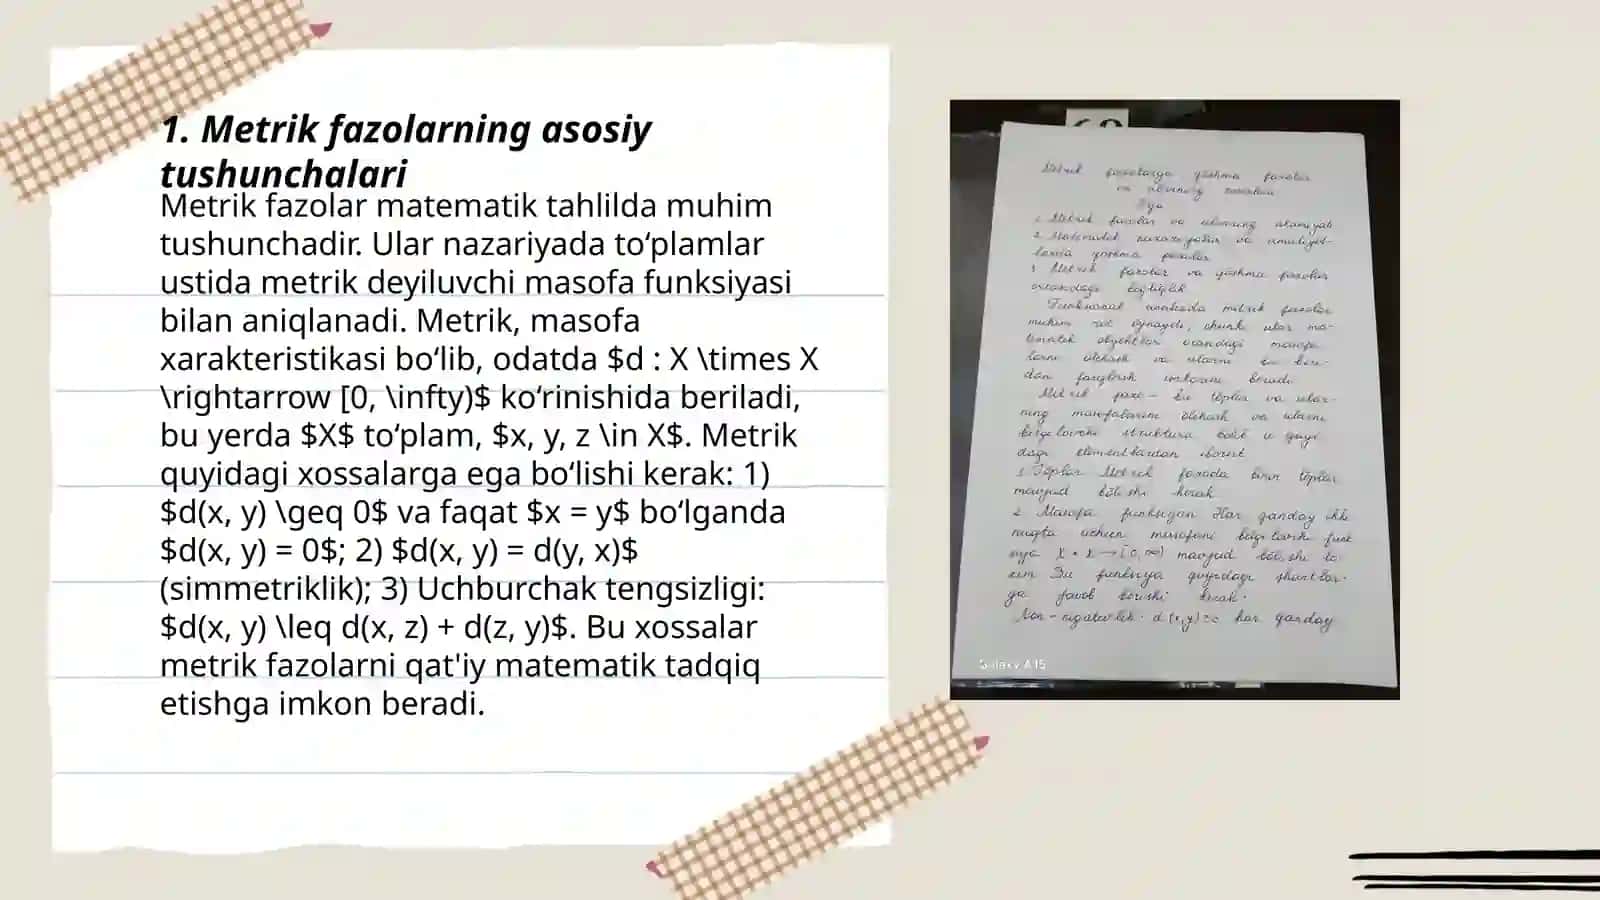 1. Metrik fazolarning asosiy
tushunchalari
Metrik fazolar matematik tahlilda muhim
tushunchadir. Ular nazariyada to‘plamlar
ustida metrik deyiluvchi masofa funksiyasi
bilan aniqlanadi. Metrik, masofa
xarakteristikasi bo‘lib, odatda $d : X \times X
\rightarrow [0, \infty)$ ko‘rinishida beriladi,
bu yerda $X$ to‘plam, $x, y, z \in X$. Metrik
quyidagi xossalarga ega bo‘lishi kerak: 1)
$d(x, y) \geq 0$ va faqat $x = y$ bo‘lganda
$d(x, y) = 0$; 2) $d(x, y) = d(y, x)$
(simmetriklik); 3) Uchburchak tengsizligi:
$d(x, y) \leq d(x, z) + d(z, y)$. Bu xossalar
metrik fazolarni qat'iy matematik tadqiq
etishga imkon beradi.
Metrik fazolarga qo'shma fazolar
va ularning
1. Metrik fazolar va ularning ahamiyati
2. Matematik va amaliyot-
larda qo'shma fazolar
3. Metrik fazolar va qo'shma fazolar
orasidagi bog'liqlik
Funksional analizda metrik fazolar
muhim rol o'ynaydi, chunki ular ma-
tematik obyektlar orasidagi masofa-
larni o'lchash va ularni bir biri-
dan farqlash imkonini beradi
Metrik fazo - bu to'plam va ular-
ning masofalarini o'lchash va ularni
belgilovchi struktura bo'lib u quyi-
dagi elementlardan iborat
1. To'plam Metrik fazoda biror to'plam
mavjud bo'lishi kerak
2. Masofa funksiyasi Har qanday ikki
nuqta uchun masofani belgilovchi funk
siya X • X → [0, ∞) mavjud bo'lishi lo-
zim Bu funksiya quyidagi shartlar-
ga javob berishi kerak.
d(x,y)≥0 har qanday
Galaxy A15